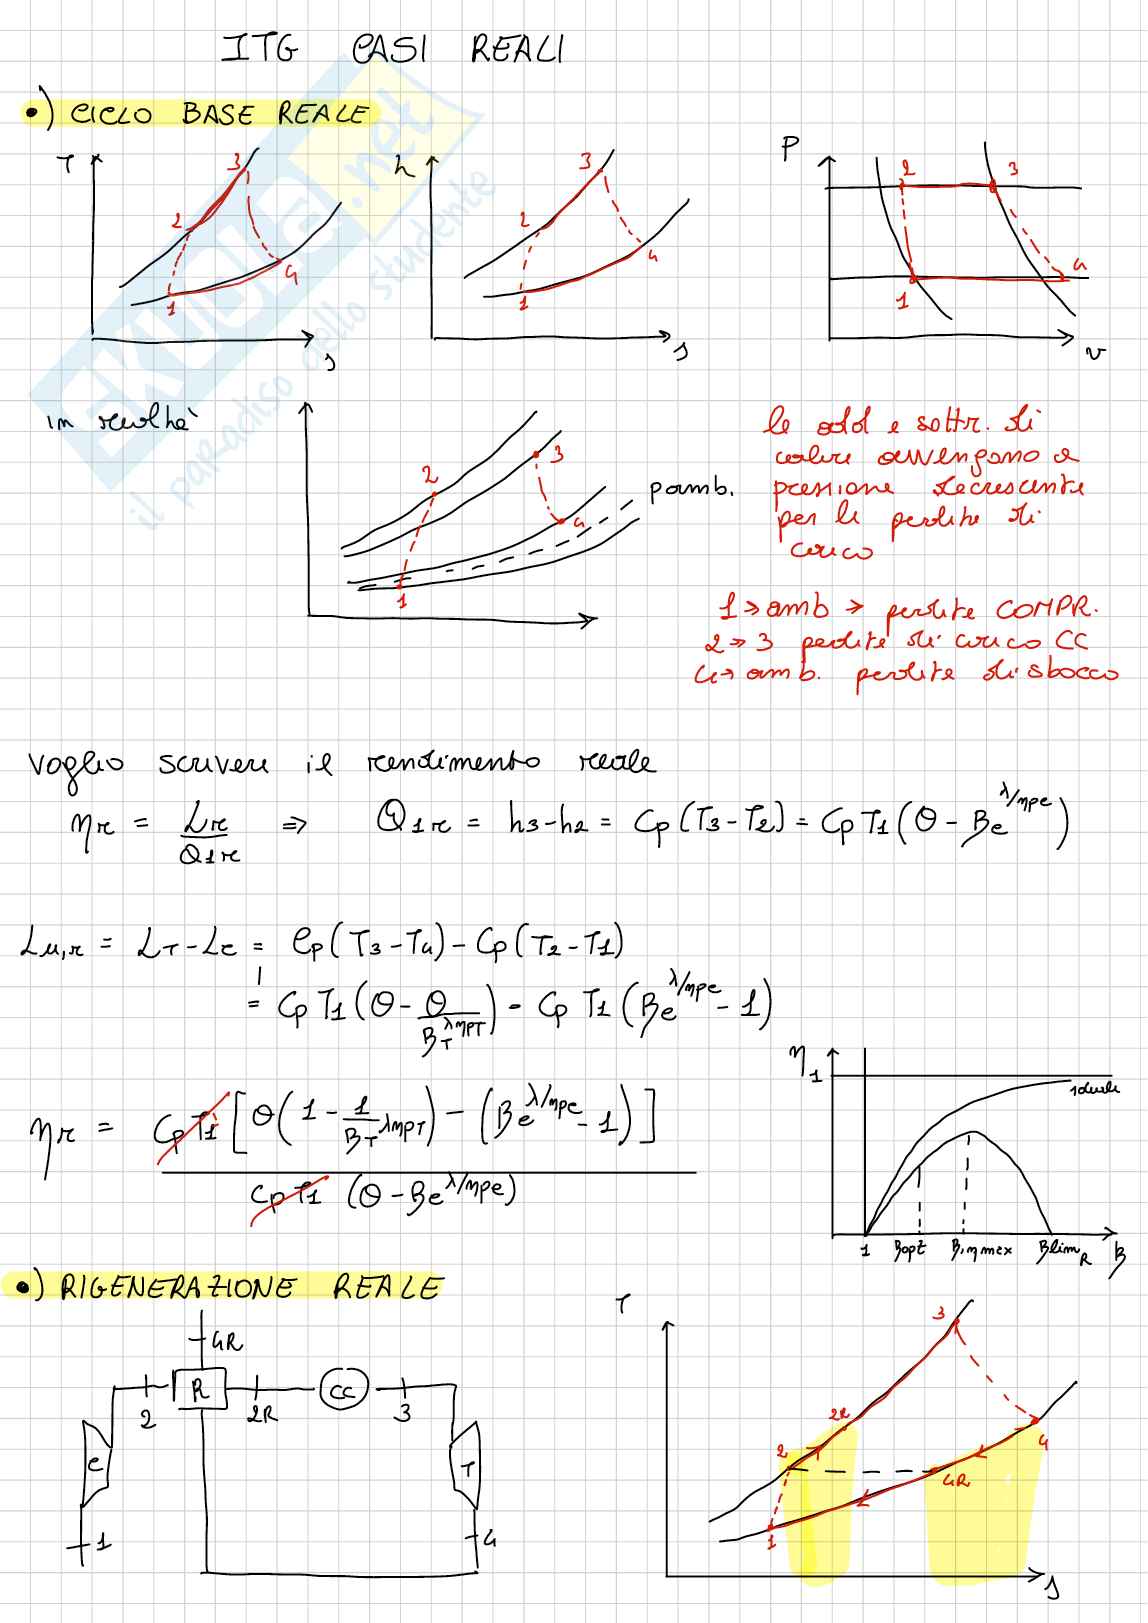 ITG CASI REALI
•) CICLO BASE REALE
T 3 2 1 4 s
h 3 2 1 4 s
P 2 3 1 4 v
in realtà
2 3 4 1
pamb.
le add e sottr. di
calore avvengono a
pressione decrescente
per le perdite di
carico
1→amb → perdite COMPR.
2→3 perdite di carico CC
4→amb. perdite di sbocco
voglio scrivere il rendimento reale
ηr = Lr/Q1r ⇒ Q1r = h3-h2 = Cp(T3-T2) = CpT1(θ - βc^λ/ηpc)
Lu,r = LT - Lc = Cp(T3-T4) - Cp(T2-T1)
= Cp T1(θ - θ/βT^ληPT) - Cp T1(βc^λ/ηpc - 1)
ηr = Cp T1[θ(1 - 1/βT^ληPT) - (βc^λ/ηpc - 1)]
Cp T1 (θ - βc^λ/ηpc)
η 1 ideale
1 βopt β,ηmax βlimR β
•) RIGENERAZIONE REALE
4R
R CC
2 2R 3
C T
1 4
T 3
2R
2 4
4R
1
s
EKUULE.net
il paradiso dello studente